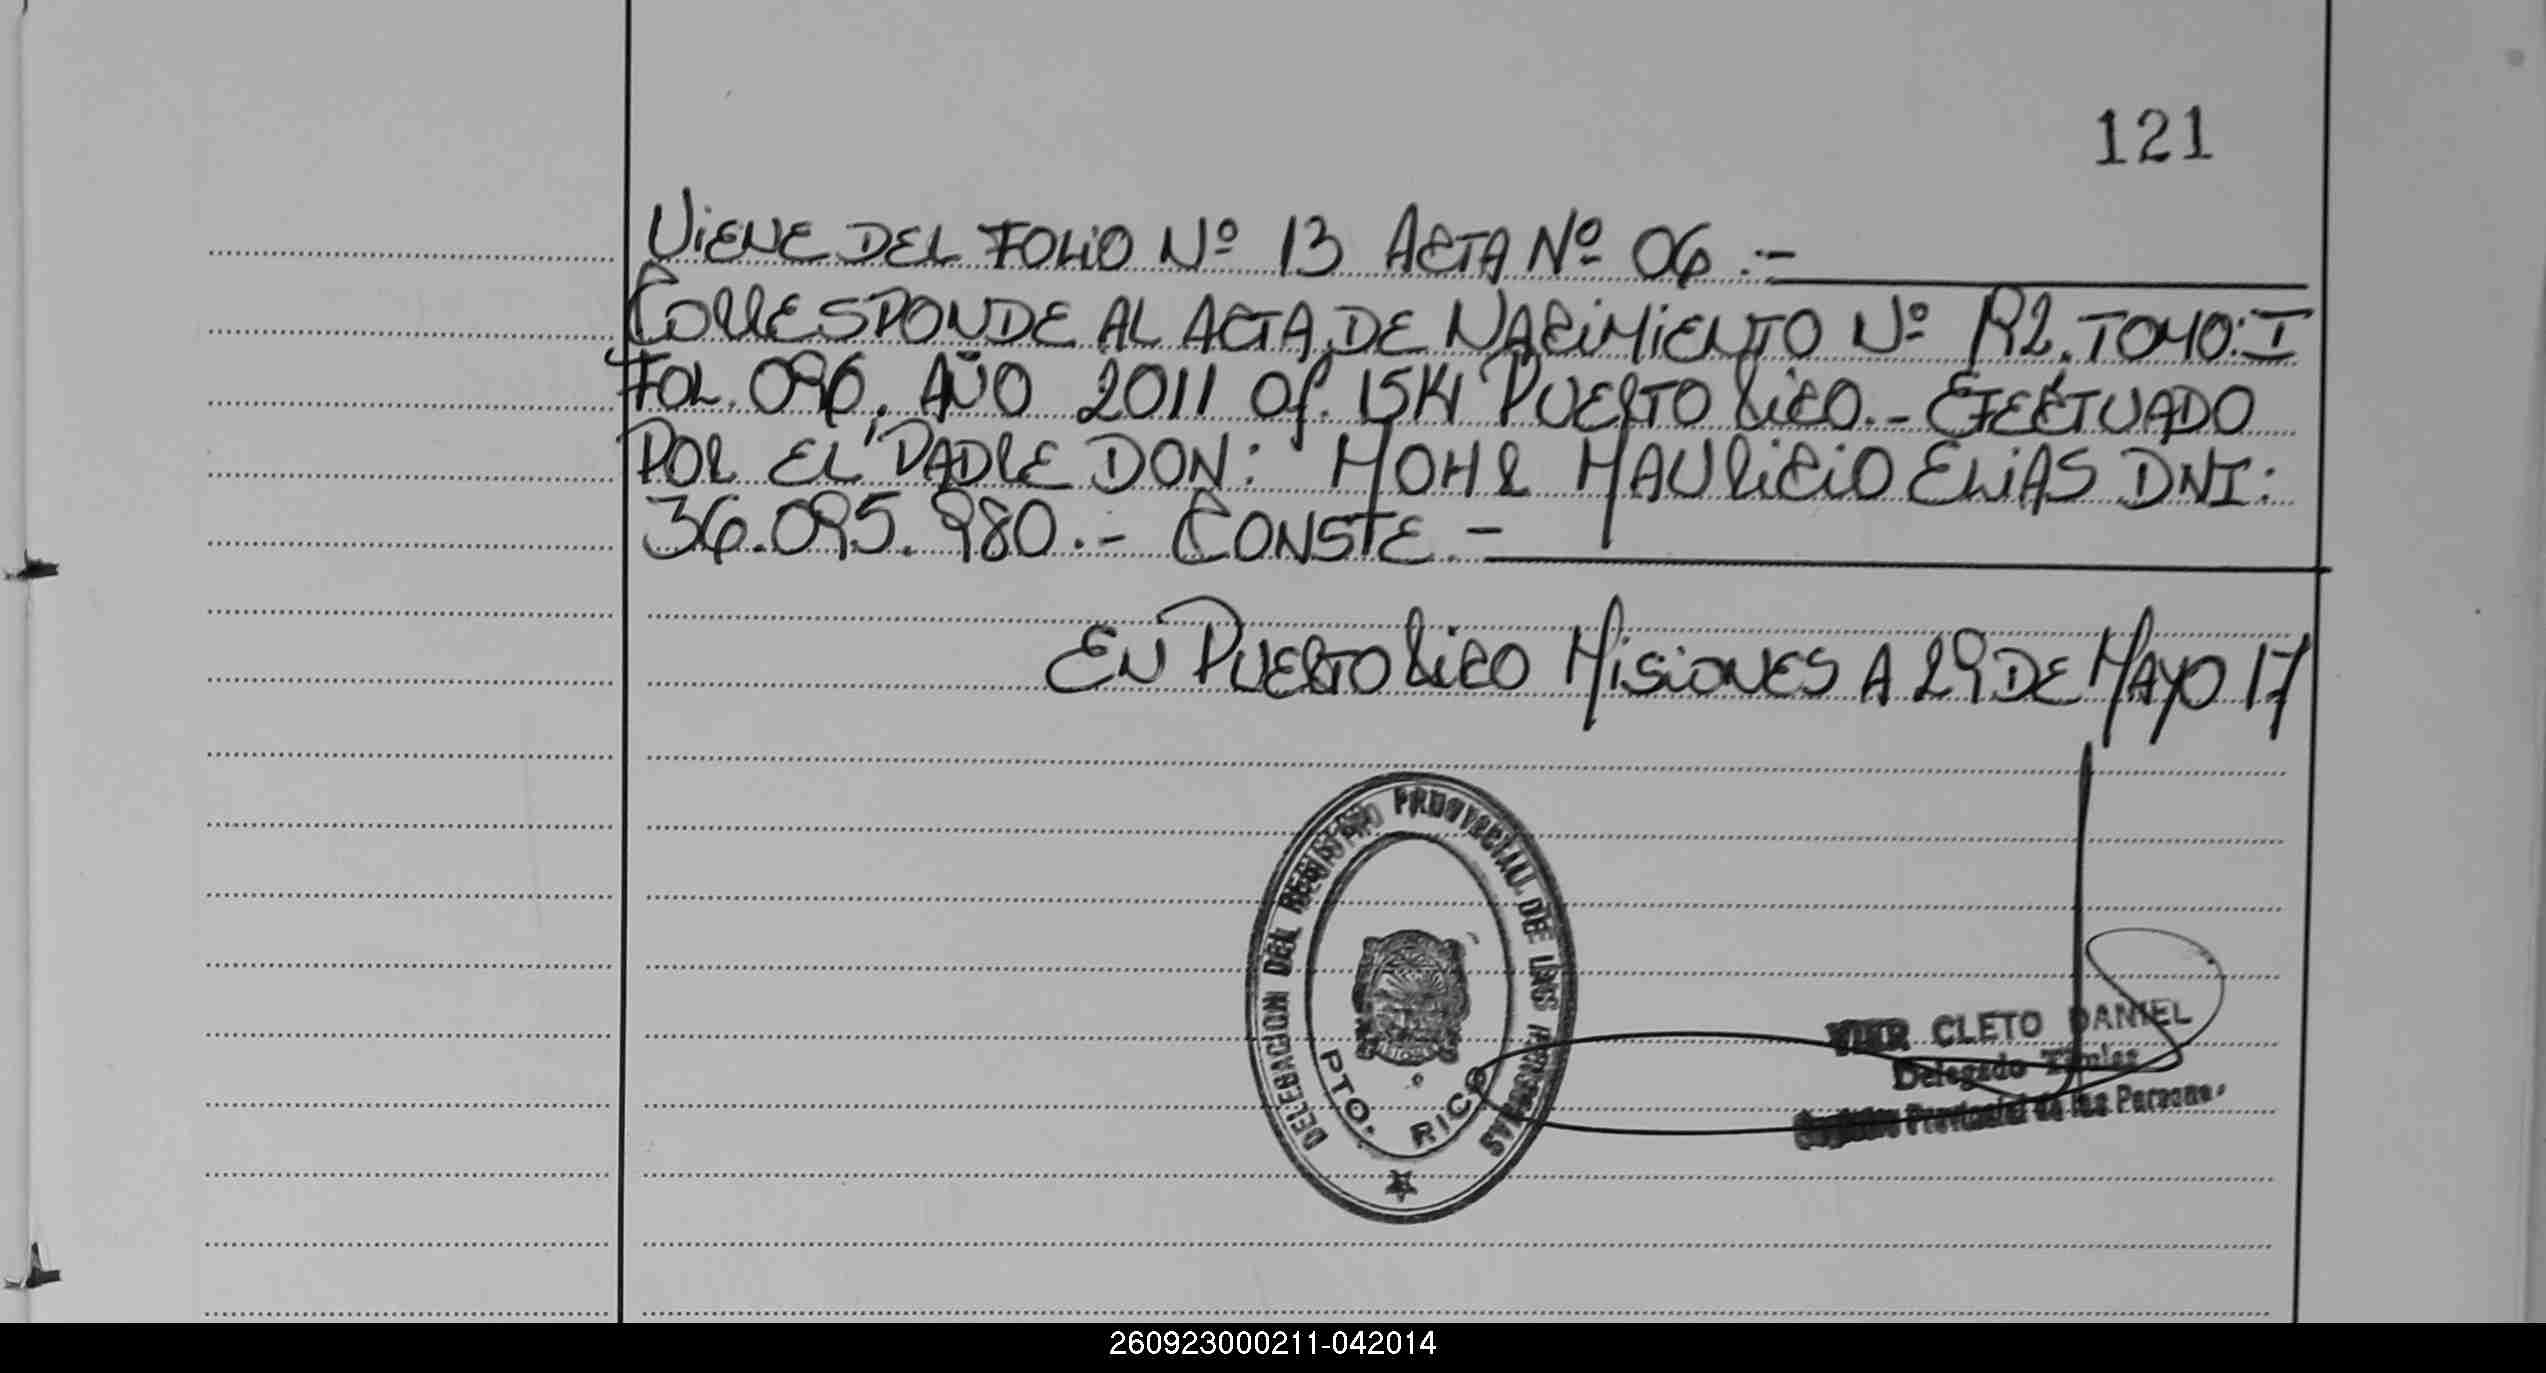 121
VIENE DEL FOLIO Nº 13 ACTA Nº 06.-
CORRESPONDE AL ACTA DE NACIMIENTO Nº 192. TOMO: I
FOL. 096. AÑO 2011 Of. 1511 PUERTO RICO.- EFECTUADO
POR EL PADRE DON: MOHR MAURICIO ELIAS DNI:
36.095.980.- CONSTE.-
EN PUERTO RICO MISIONES A 29 DE MAYO 17
DELEGACION DEL REGISTRO PROVINCIAL DE LAS PERSONAS
PTO. RICO
VIER CLETO DANIEL
Delegado Titular
Registro Provincial de las Personas
260923000211-042014